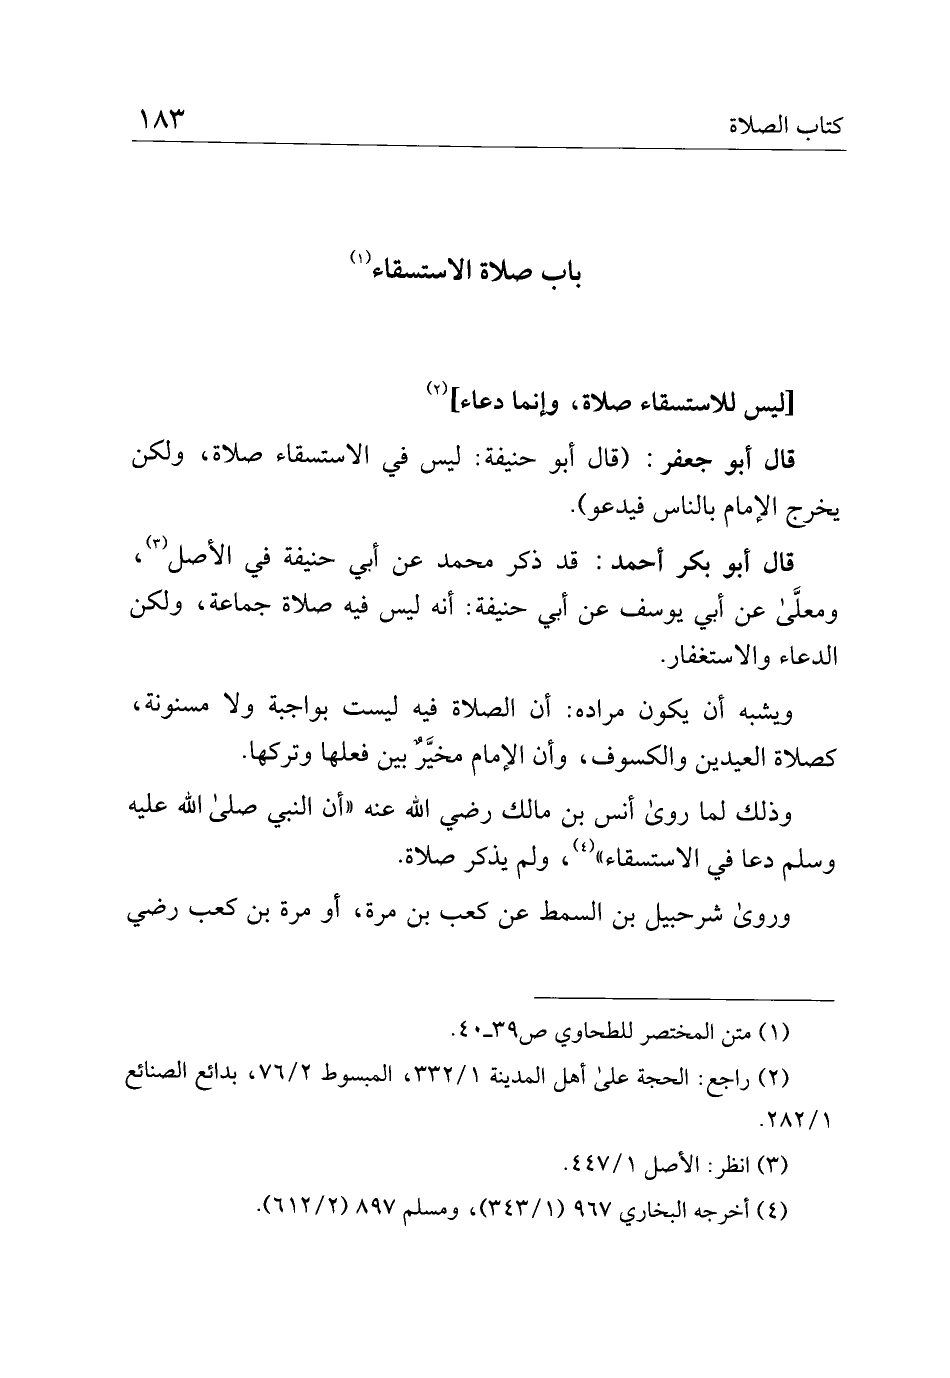 كتاب الصلاة ١٨٣
باب صلاة الاستسقاء(١)
[ليس للاستسقاء صلاة، وإنما دعاء](٢)
قال أبو جعفر : (قال أبو حنيفة: ليس في الاستسقاء صلاة، ولكن
يخرج الإمام بالناس فيدعو).
قال أبو بكر أحمد : قد ذكر محمد عن أبي حنيفة في الأصل(٣)،
ومعلَّىٰ عن أبي يوسف عن أبي حنيفة: أنه ليس فيه صلاة جماعة، ولكن
الدعاء والاستغفار.
ويشبه أن يكون مراده: أن الصلاة فيه ليست بواجبة ولا مسنونة،
كصلاة العيدين والكسوف، وأن الإمام مخيَّرٌ بين فعلها وتركها.
وذلك لما روىٰ أنس بن مالك رضي الله عنه «أن النبي صلىٰ الله عليه
وسلم دعا في الاستسقاء»(٤)، ولم يذكر صلاة.
وروىٰ شرحبيل بن السمط عن كعب بن مرة، أو مرة بن كعب رضي
(١) متن المختصر للطحاوي ص٣٩ـ٤٠.
(٢) راجع: الحجة علىٰ أهل المدينة ٣٣٢/١، المبسوط ٧٦/٢، بدائع الصنائع
٢٨٢/١.
(٣) انظر: الأصل ٤٤٧/١.
(٤) أخرجه البخاري ٩٦٧ (٣٤٣/١)، ومسلم ٨٩٧ (٦١٢/٢).